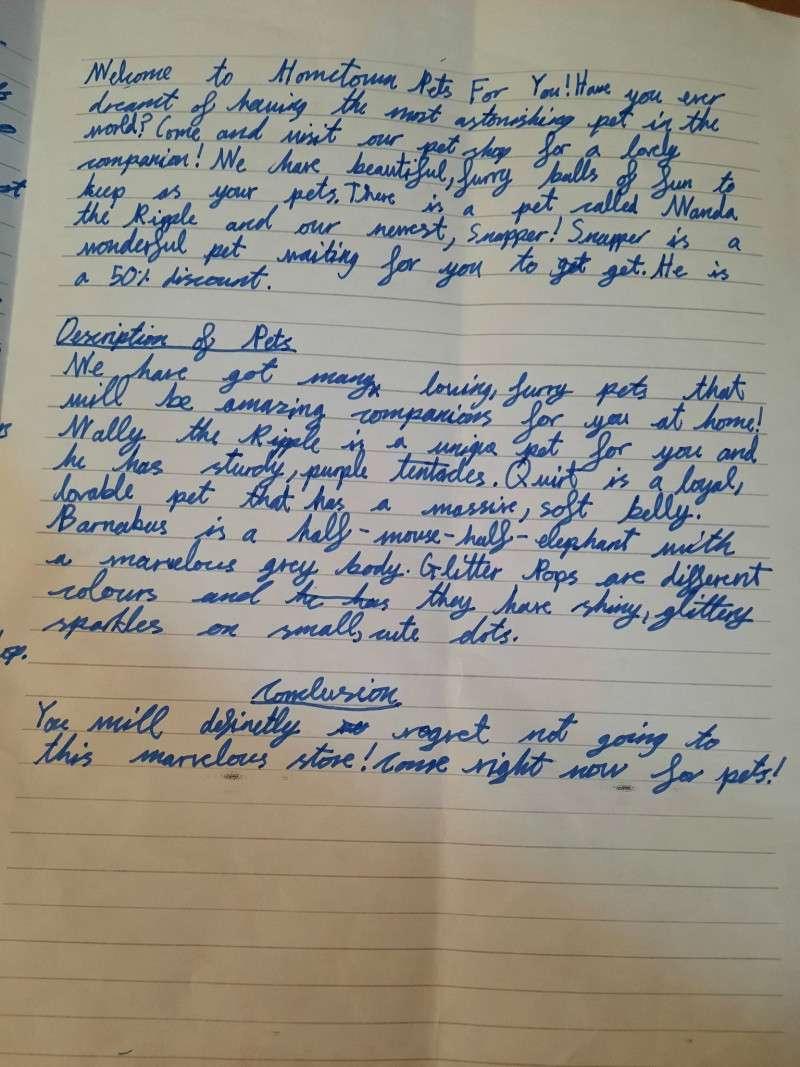 Welcome to Hometown Pets For You! Have you ever
dreamt of having the most astonishing pet in the
world? Come and visit our pet shop for a lovely
companion! We have beautiful, furry balls of fun to
keep as your pets. There is a pet called Wanda
the Ripple and our newest, Snapper! Snapper is a
wonderful pet waiting for you to get get. He is
a 50% discount.
Description of Pets
We have got many loving, furry pets that
will be amazing companions for you at home!
Wally the Ripple is a uniqe pet for you and
he has sturdy, purple tentacles. Quirt is a loyal,
lovable pet that has a massive, soft belly.
Barnabus is a half-mouse-half-elephant with
a marvelous grey body. Glitter Pops are different
colours and he has they have shiny, glittery
sparkles on small, cute dots.
Conclusion
You will definetly regret not going to
this marvelous store! Come right now for pets!